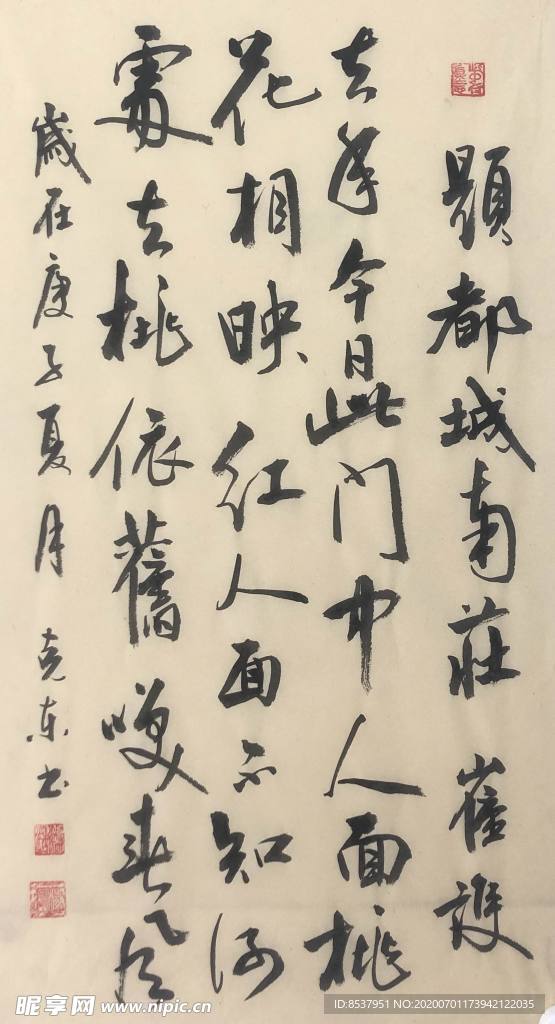 題都城南莊 崔護
去年今日此門中人面桃
花相映紅人面不知何
處去桃依舊咲春風
歲在庚子夏月 克東書
昵享网 www.nipic.cn
ID:8537951 NO:20200701173942122035